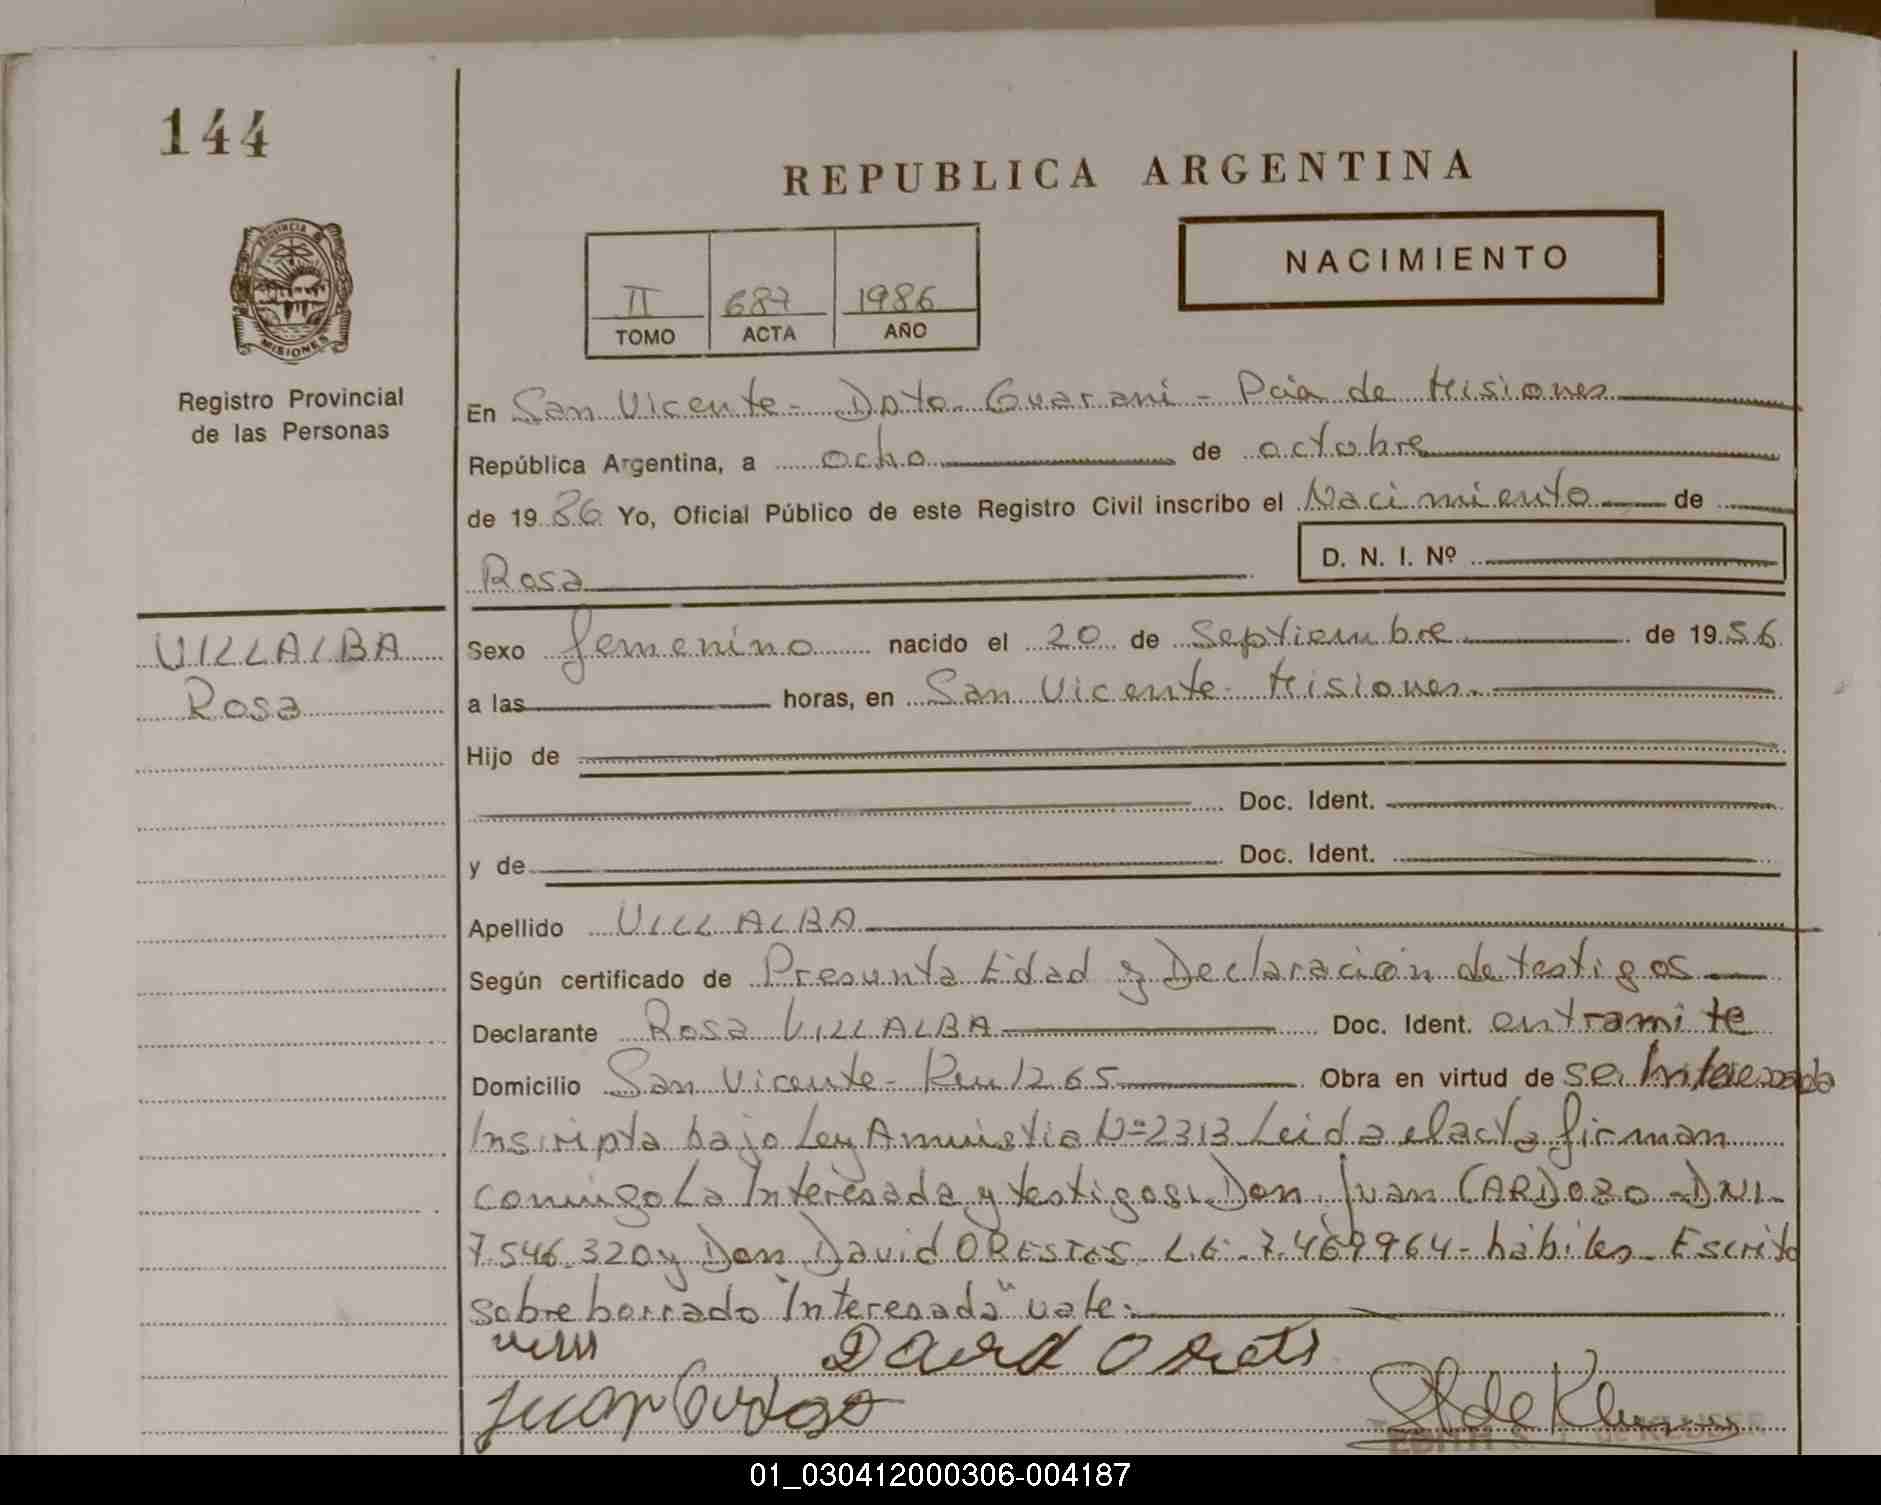 144
REPUBLICA ARGENTINA
PROVINCIA
MISIONES
Registro Provincial
de las Personas
NACIMIENTO
II 687 1986
TOMO ACTA AÑO
En San Vicente - Dpto. Guarani - Pcia de Misiones
República Argentina, a ocho de octubre
de 19 86 Yo, Oficial Público de este Registro Civil inscribo el Nacimiento de
D. N. I. Nº
Rosa
VILLALBA
Rosa
Sexo femenino nacido el 20 de Septiembre de 19 56
a las horas, en San Vicente - Misiones.
Hijo de
Doc. Ident.
y de Doc. Ident.
Apellido VILLALBA
Según certificado de Presunta Edad y Declaración de testigos
Declarante Rosa VILLALBA Doc. Ident. en tramite
Domicilio San Vicente - Km 1265 Obra en virtud de ser Interesada
Inscripta bajo Ley Amnistia Nº 2313 Leida el acta firman
conmigo La Interesada y testigos: Don Juan CARDOZO - DNI -
7.546.320 y Don David ORESTES L.E. 7.469.964 - hábiles - Escrito
sobre borrado "Interesada" vale:
David Orests
Juan Cardozo
EDITH S. T. de KLUSER
01_030412000306-004187